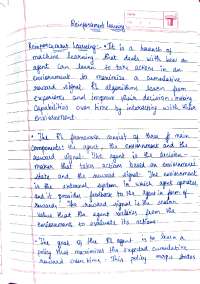 Reinforcement learning
Reinforcement Learning :- • It is a branch of
machine learning that deals with how an
agent can learn to take actions in an
environment to maximize a cumulative
reward signal. RL algorithms learn from
experience and improve their decision-making
capabilities over time by interacting with their
environment.
• The RL framework consist of three main
components: the agent, the environment and the
reward signal. The agent is the decision
maker that takes actions based on environment
state and the reward signal. The environment
is the external system in which agent operates
and it provides feedback to the agent in form of
rewards. The reward signal is the scalar
value that the agent receives from the
environment to evaluate its actions.
- The goal of the RL agent is to learn a
policy that maximizes the expected cumulative
reward over time. This policy maps states